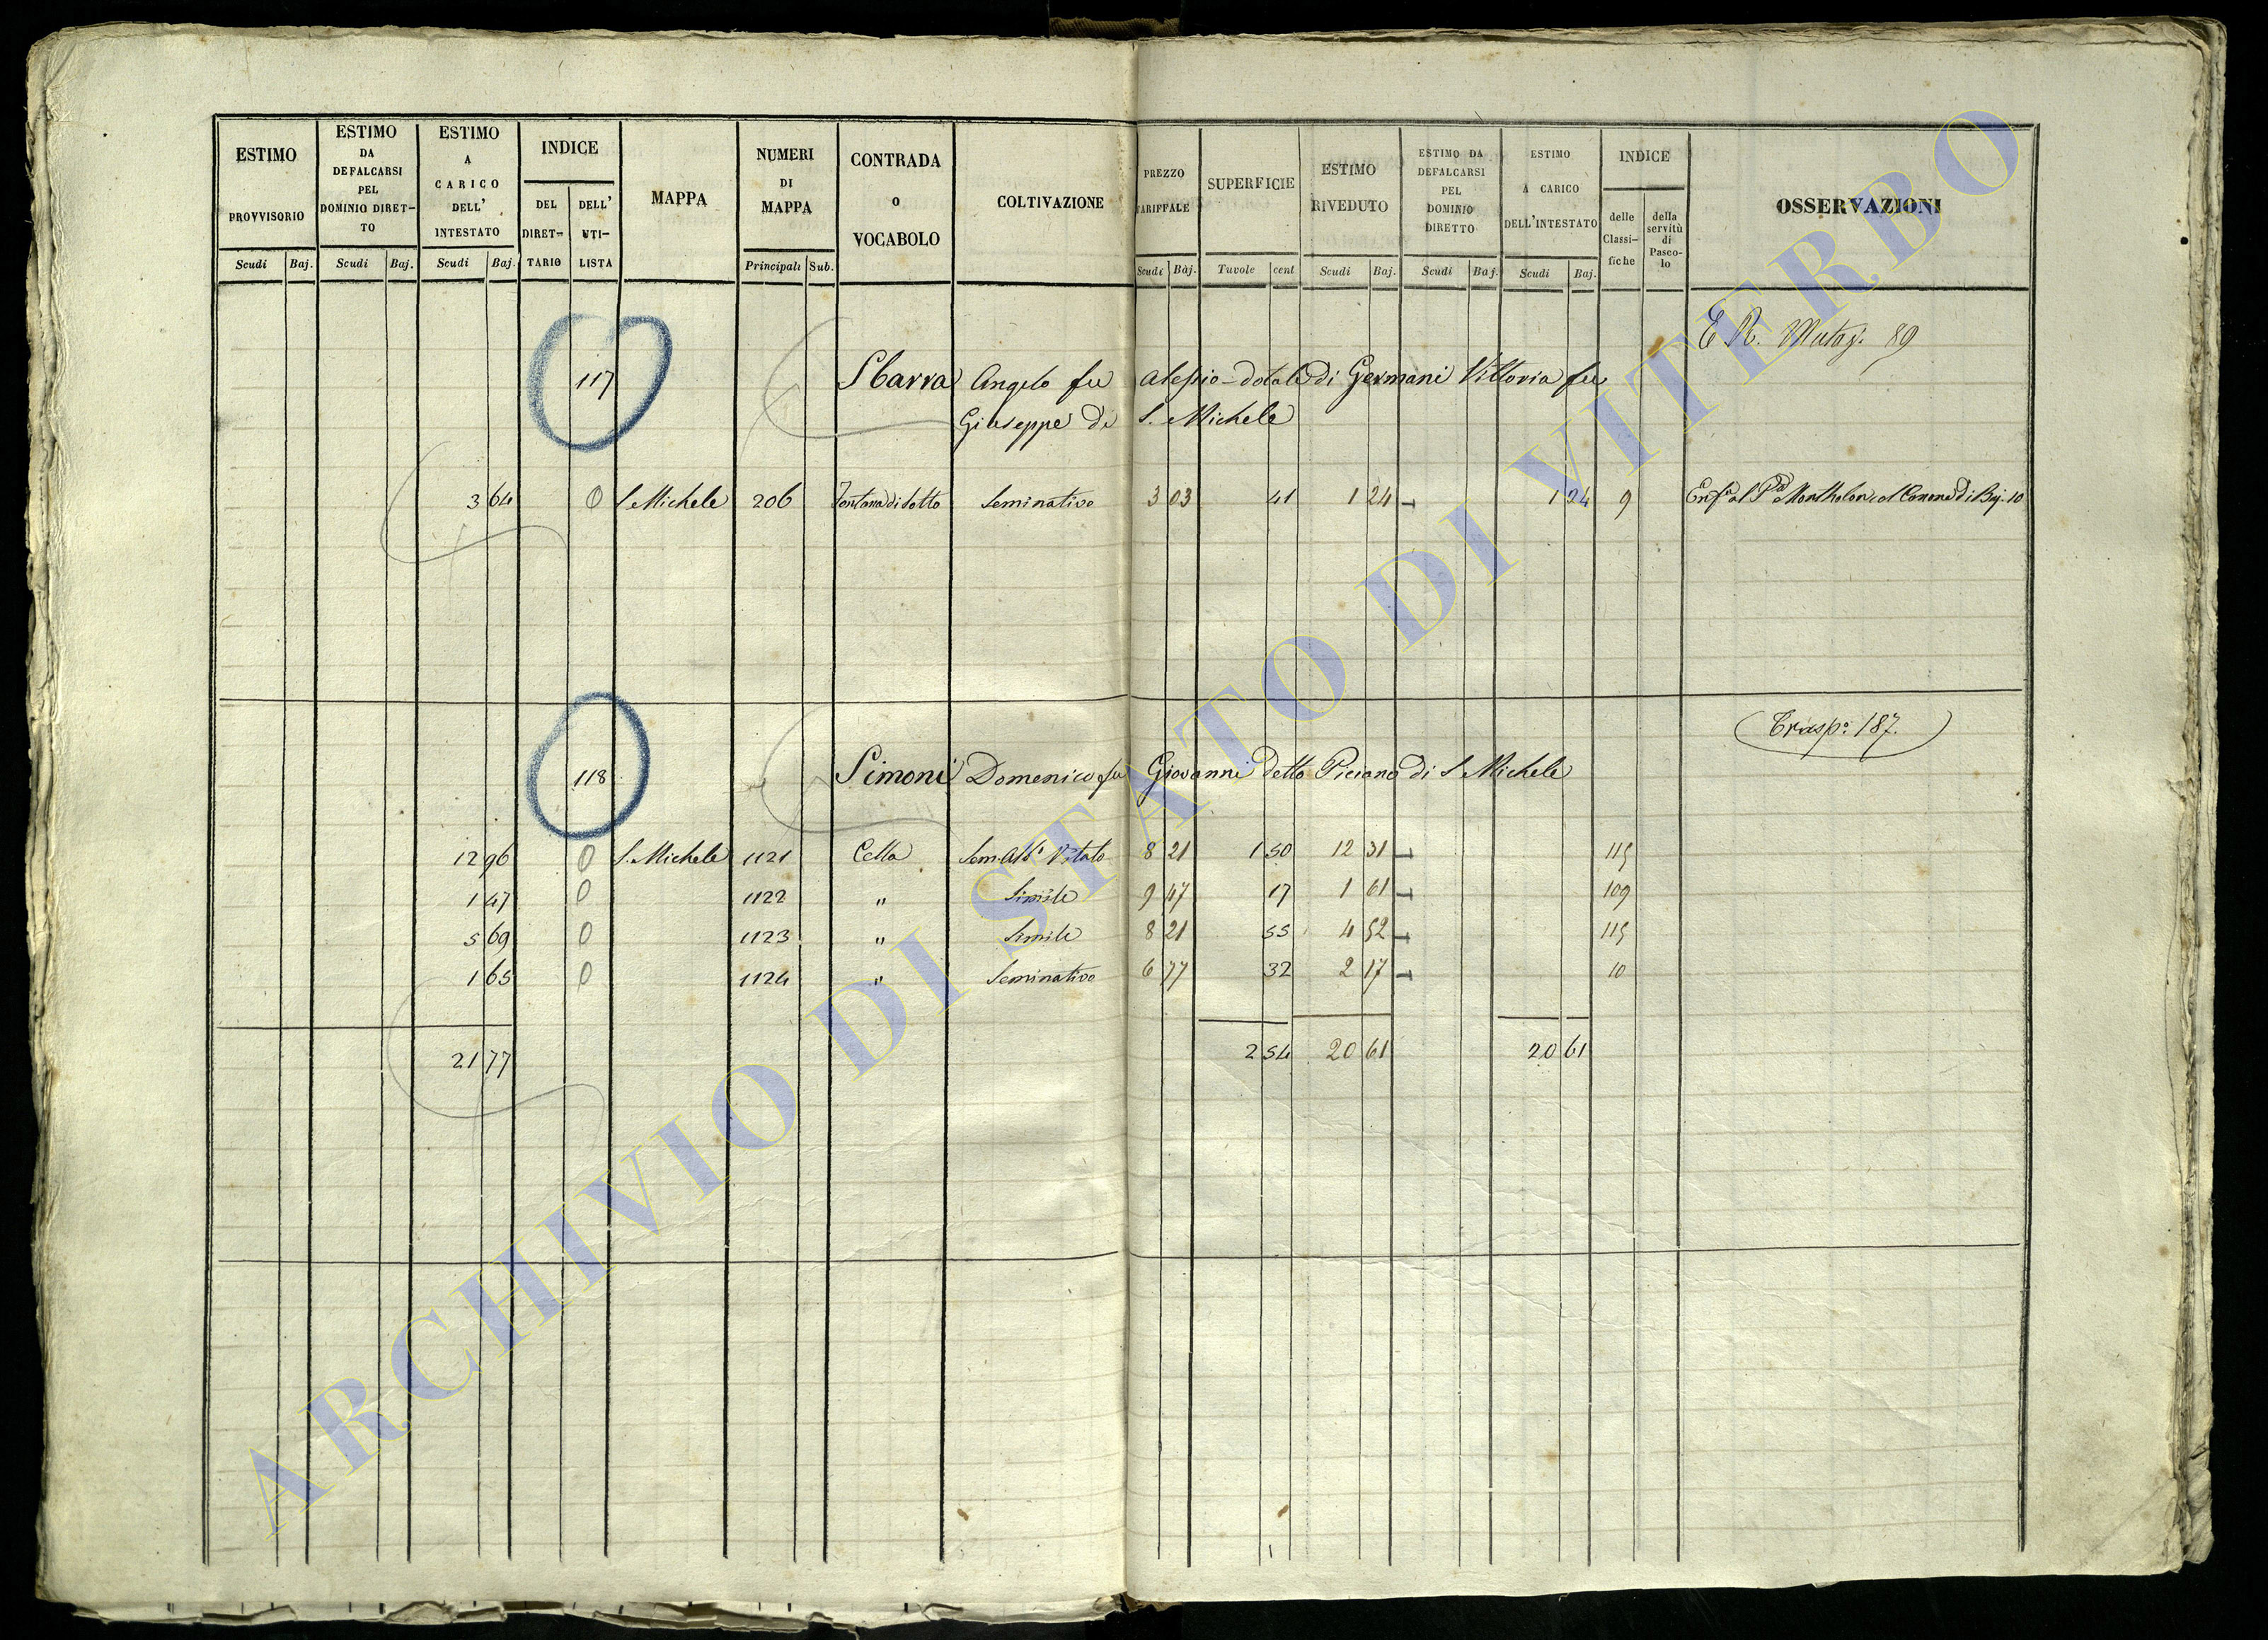 ESTIMO PROVVISORIO
ESTIMO DA DEFALCARSI PEL DOMINIO DIRET-TO
ESTIMO A CARICO DELL' INTESTATO
INDICE
DEL DIRET-TARIO
DELL' UTI-LISTA
MAPPA
NUMERI DI MAPPA
CONTRADA O VOCABOLO
COLTIVAZIONE
PREZZO TARIFFALE
SUPERFICIE
ESTIMO RIVEDUTO
ESTIMO DA DEFALCARSI PEL DOMINIO DIRETTO
ESTIMO A CARICO DELL'INTESTATO
INDICE
delle Classi-fiche
della servitù di Pasco-lo
OSSERVAZIONI
Scudi Baj. Scudi Baj. Scudi Baj. Principali Sub. Scudi Baj. Tuvole cent Scudi Baj. Scudi Baj. Scudi Baj.
E R. Mutaz. 89
117 Sbarra Angelo fu Alessio - dotale di Germani Vittoria fu
Giuseppe di S. Michele
3 64 0 S. Michele 206 Fontana di Sotto Seminativo 3 03 41 1 24 1 24 9 al Montholon col Canone di Baj. 10
Trasp: 187.
118 Simoni Domenico fu Giovanni detto Piciano di S. Michele
12 96 0 S. Michele 1121 Cella Sem. Alb. Vitato 8 21 1 50 12 31 115
1 47 0 1122 " Simile 9 47 17 1 61 109
5 69 0 1123 " Simile 8 21 55 4 52 115
1 65 0 1124 " Seminativo 6 77 32 2 17 10
21 77 2 54 20 61 20 61
ARCHIVIO DI STATO DI VITERBO